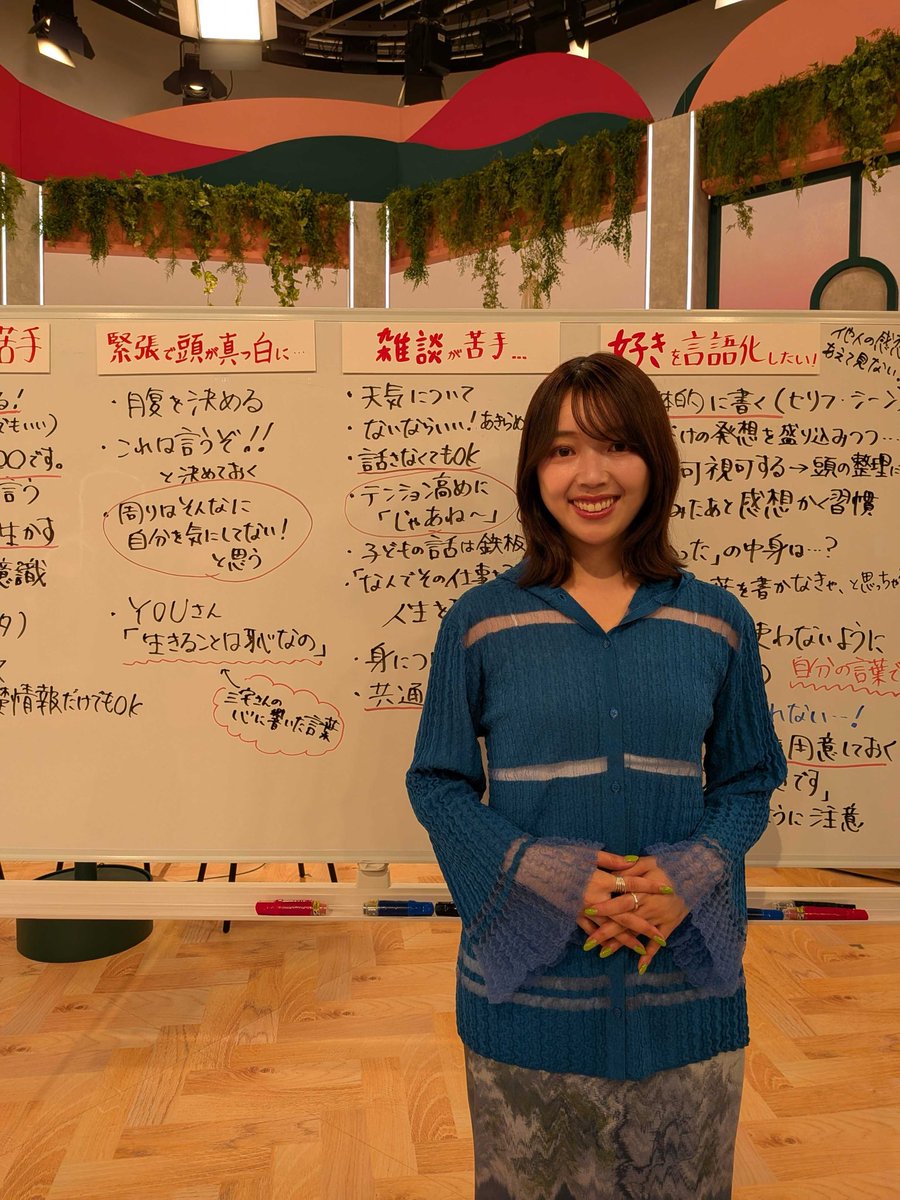 苦手
る！
でもいい）
〇〇です。
言う
生かす
意識
タ）
情報だけでもOK
緊張で頭が真っ白に…
・腹を決める
・これは言うぞ！！
と決めておく
・周りはそんなに
自分を気にしてない！
と思う
・YOUさん
「生きることは恥なの」
三宅さんの
心に響いた言葉
雑談が苦手…
・天気について
・ないならいい！あきらめ
・話さなくてもOK
・テンション高めに
「じゃあね〜」
・子どもの話は鉄板
・「なんでその仕事を
人生を
・身につ
・共通
好きを言語化したい！
他人の感想
見ない
体的に書く（セリフ・シーン
けの発想を盛り込みつつ…
可視可する→頭の整理に
みたあと感想かく習慣
った」の中身は…？
を書かなきゃ、と思っちゃ
使わないように
自分の言葉で
れない…！
用意しておく
いです」
ように注意